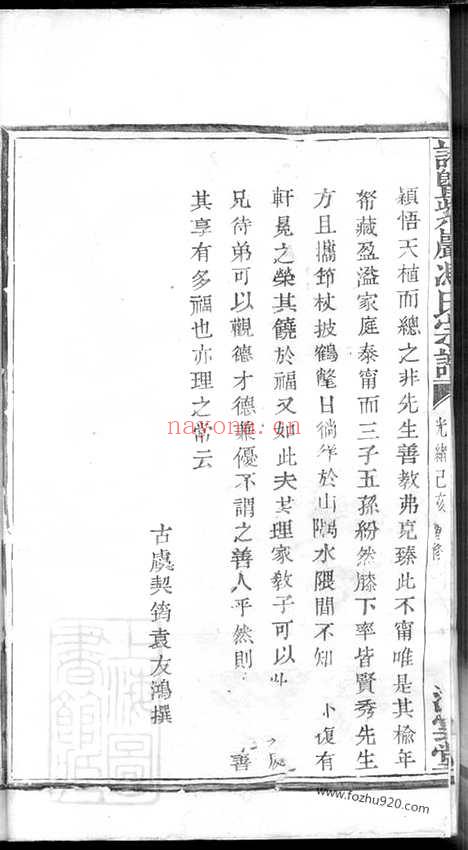 諸暨孝廉馮氏宗譜
光緒己亥重修
穎悟天植而總之非先生善教弗克臻此不甯唯是其榆年
帑藏盈溢家庭泰甯而三子五孫紛然膝下率皆賢秀先生
方且攜筇杖披鶴氅日徜徉於山隅水隈間不知 復有
軒冕之榮其饒於福又如此夫其理家教子可以
兄待弟可以觀德才德兼優不謂之善人乎然則 善
其享有多福也亦理之常云
古虞契筠袁友鴻撰
上海圖書館藏
nayona.cn
https://www.fozhu920.com/